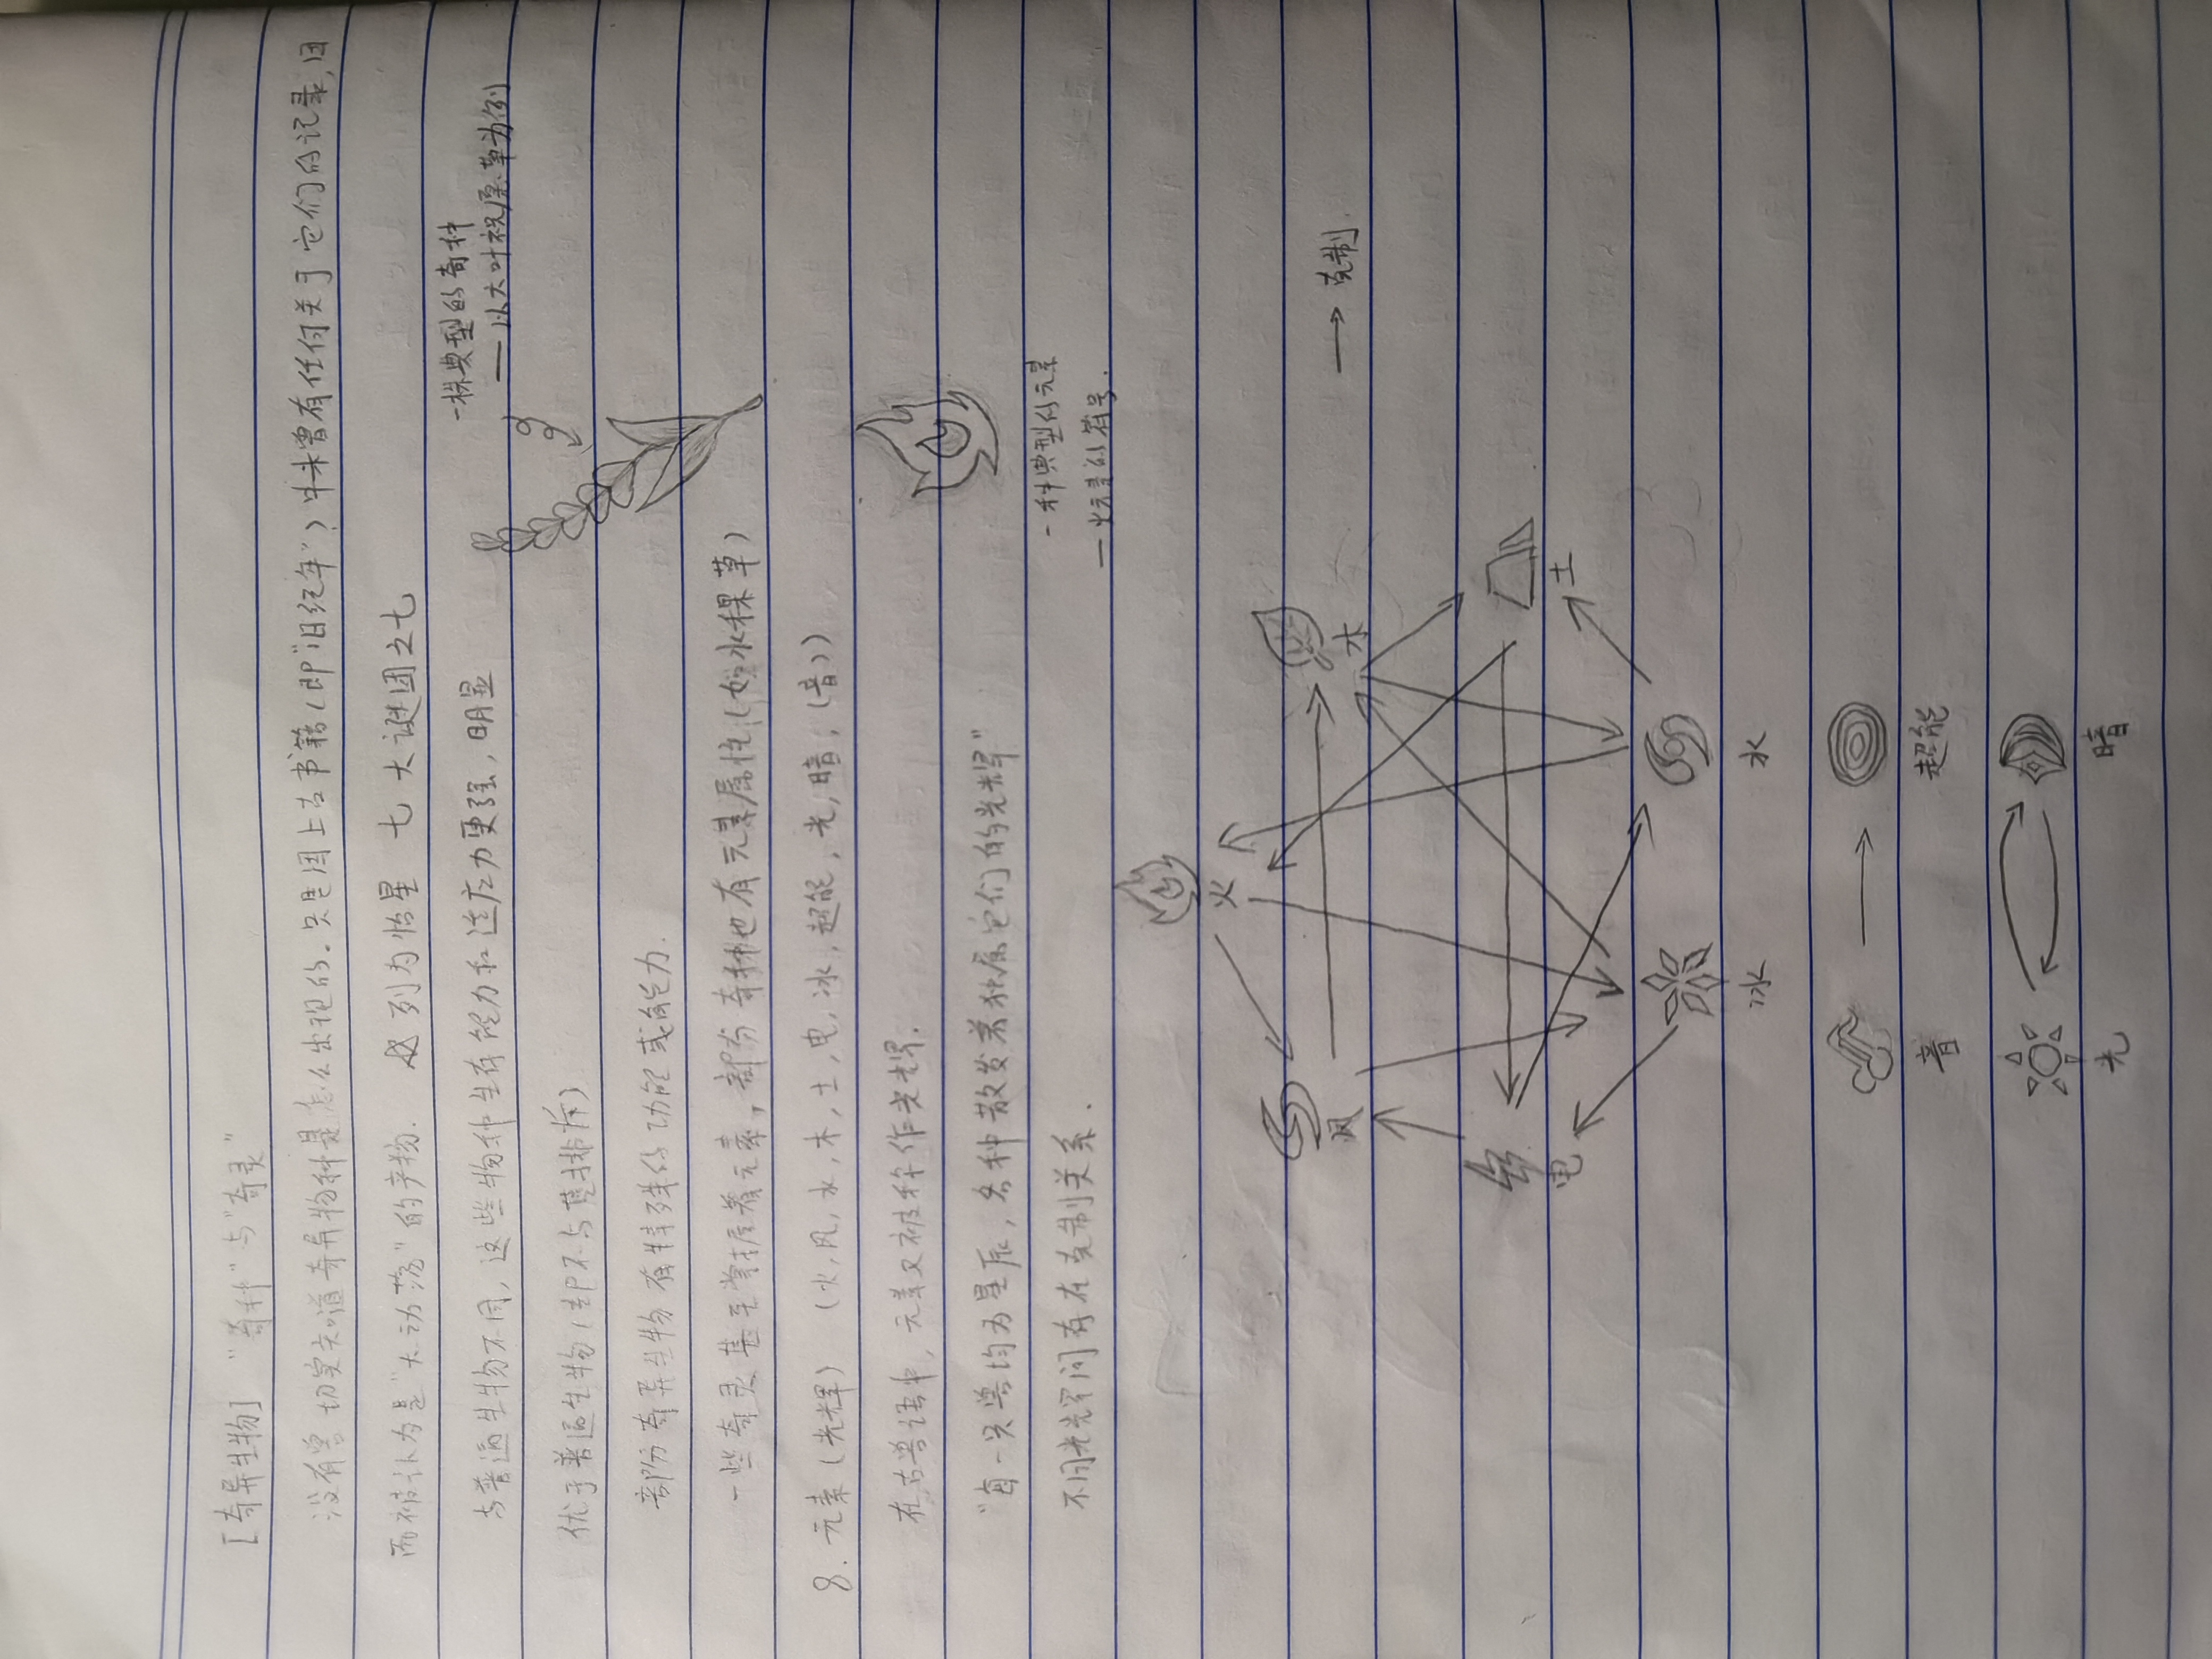 [奇异生物] "奇种"与"奇灵"
没有曾切实知道奇异物种是怎么出现的.只是因上古书籍(即"旧纪年")中未曾有任何关于它们的记录,因
而被认为是"大动荡"的产物. 列为怡星 七大谜团之七
与普遍生物不同,这些物种生存能力和适应力更强,明显
一株典型的奇种
——以大叶祝愿草为例
优于普遍生物(却不与其排斥)
部份奇异生物有特殊的功能或能力.
一些奇灵甚至掌握着元素,部份奇种也有元素属性(如水稞草)
8.元素(光辉) (火,风,水,木,土,电,冰,超能,光,暗,(音))
在古兽语中,元素又被称作光辉.
"每一只兽均为星辰,各种散发着独属它们的光辉"
一种典型的元素
—火元素的符号.
不同光辉间存在克制关系.
→克制.
火
风
木
电
土
冰
水
音 → 超能
光
暗